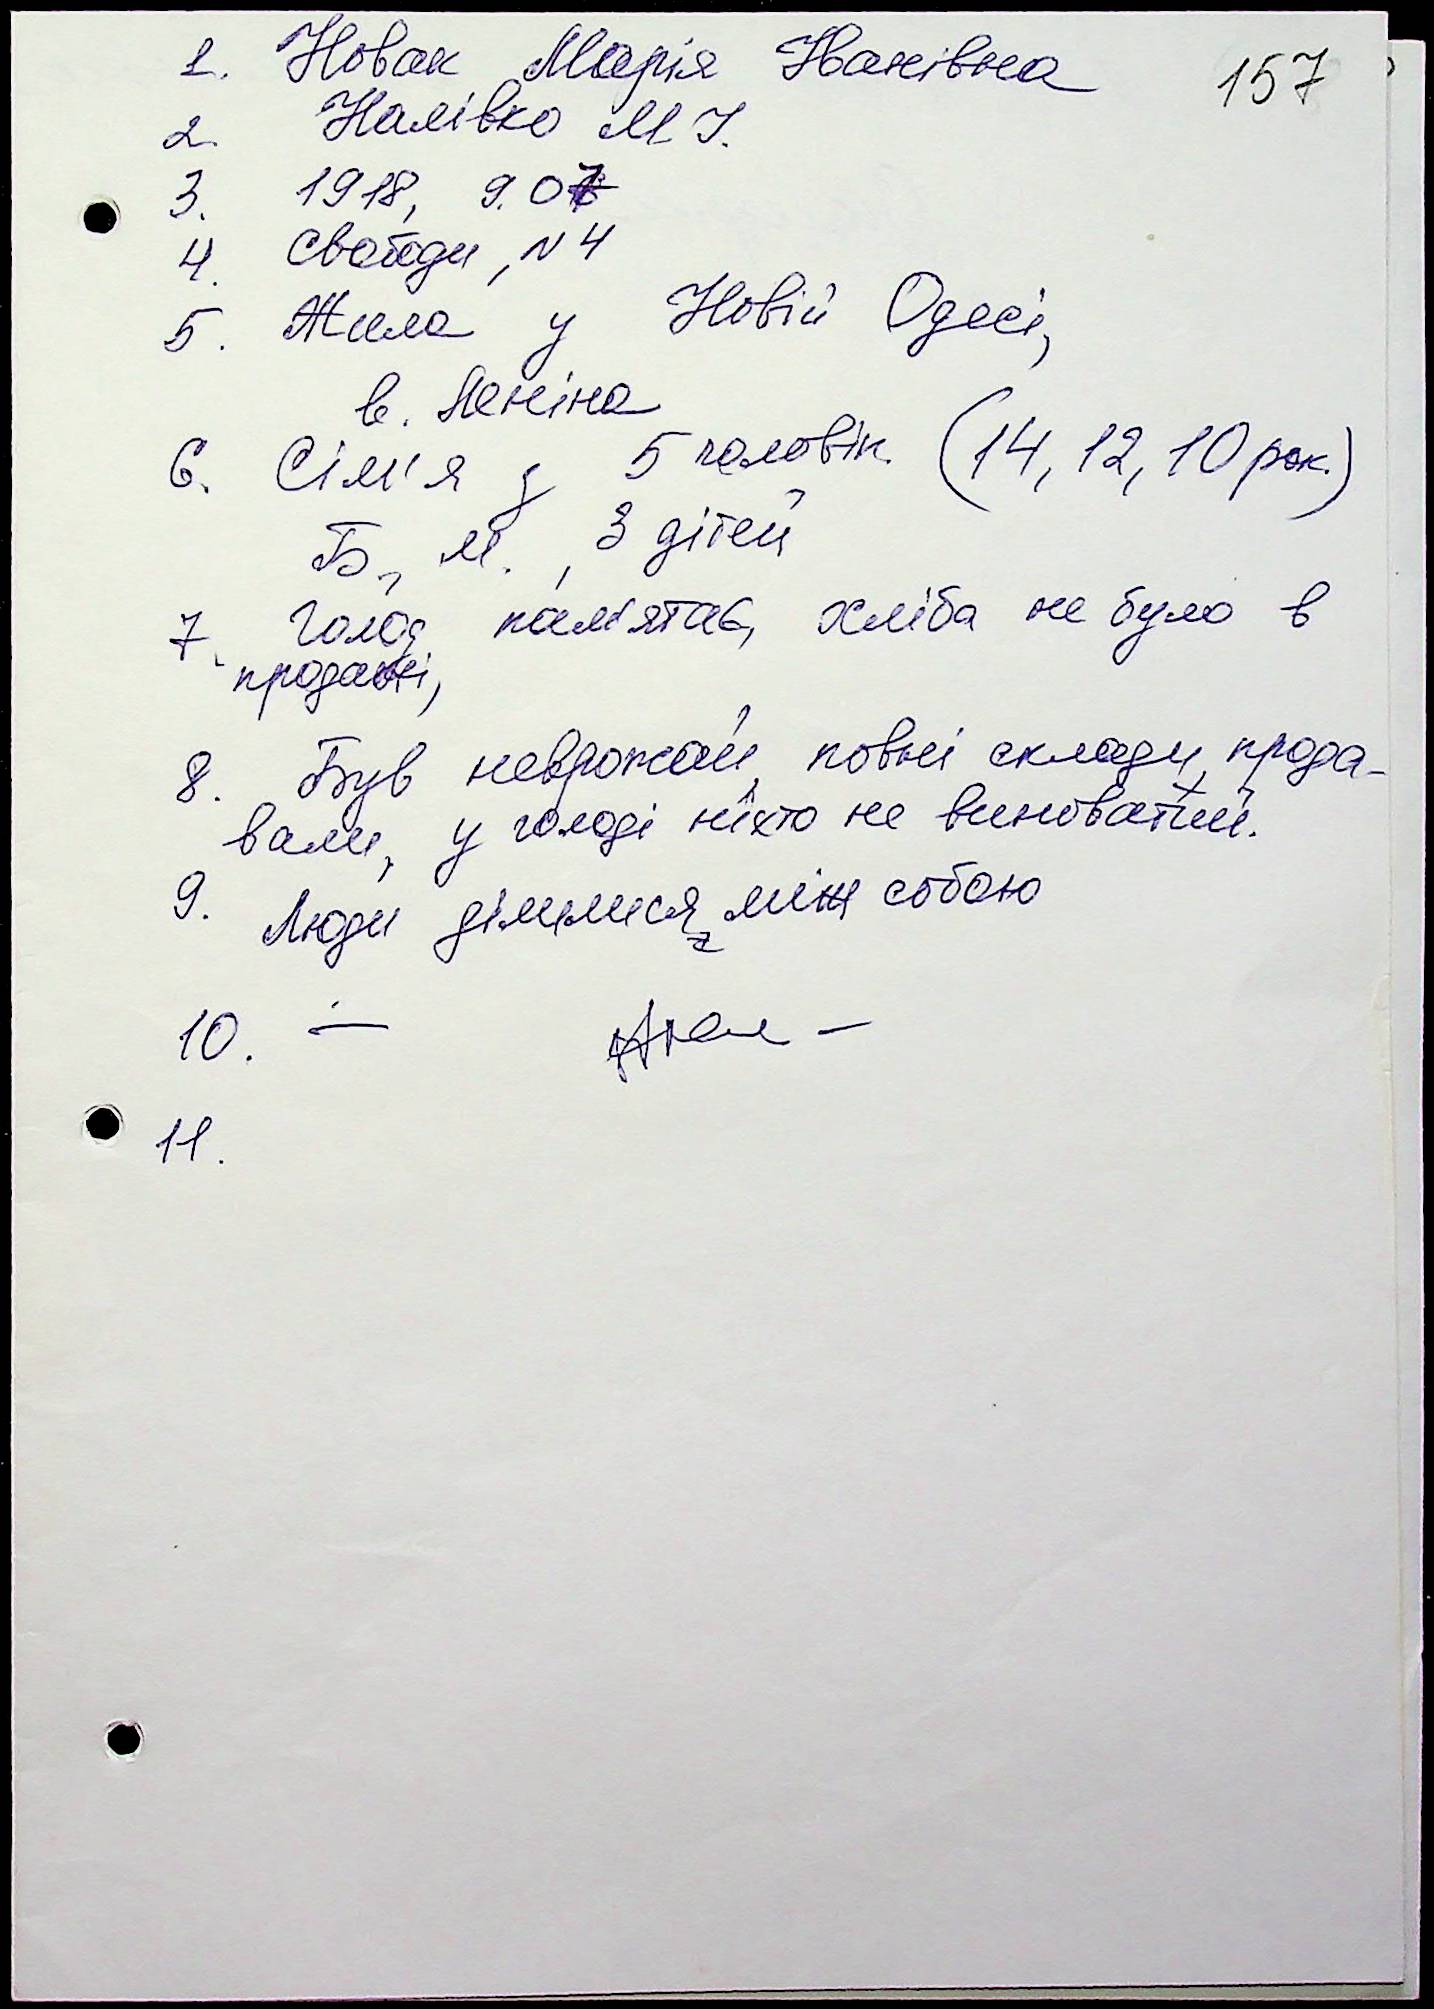 157
1. Новак Марія Іванівна
2. Налівко М І.
3. 1918, 9.07
4. Свободи, N 4
5. Жила у Новій Одесі,
в. Леніна
6. Сім'я з 5 чоловік. (14, 12, 10 рок.)
Б., М., 3 дітей
7. Голод пам'ятає, хліба не було в
продажі,
8. Був неврожай, повні склади, прода-
вали, у голоді ніхто не виноватий.
9. Люди ділилися між собою
10. —
11.